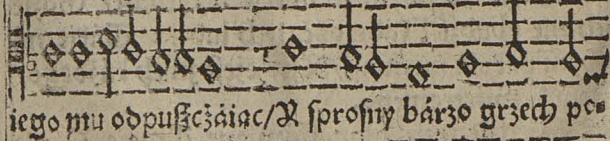 iego mu odpuſzcżáiąc/ A ſproſny bárzo grzech po⸗